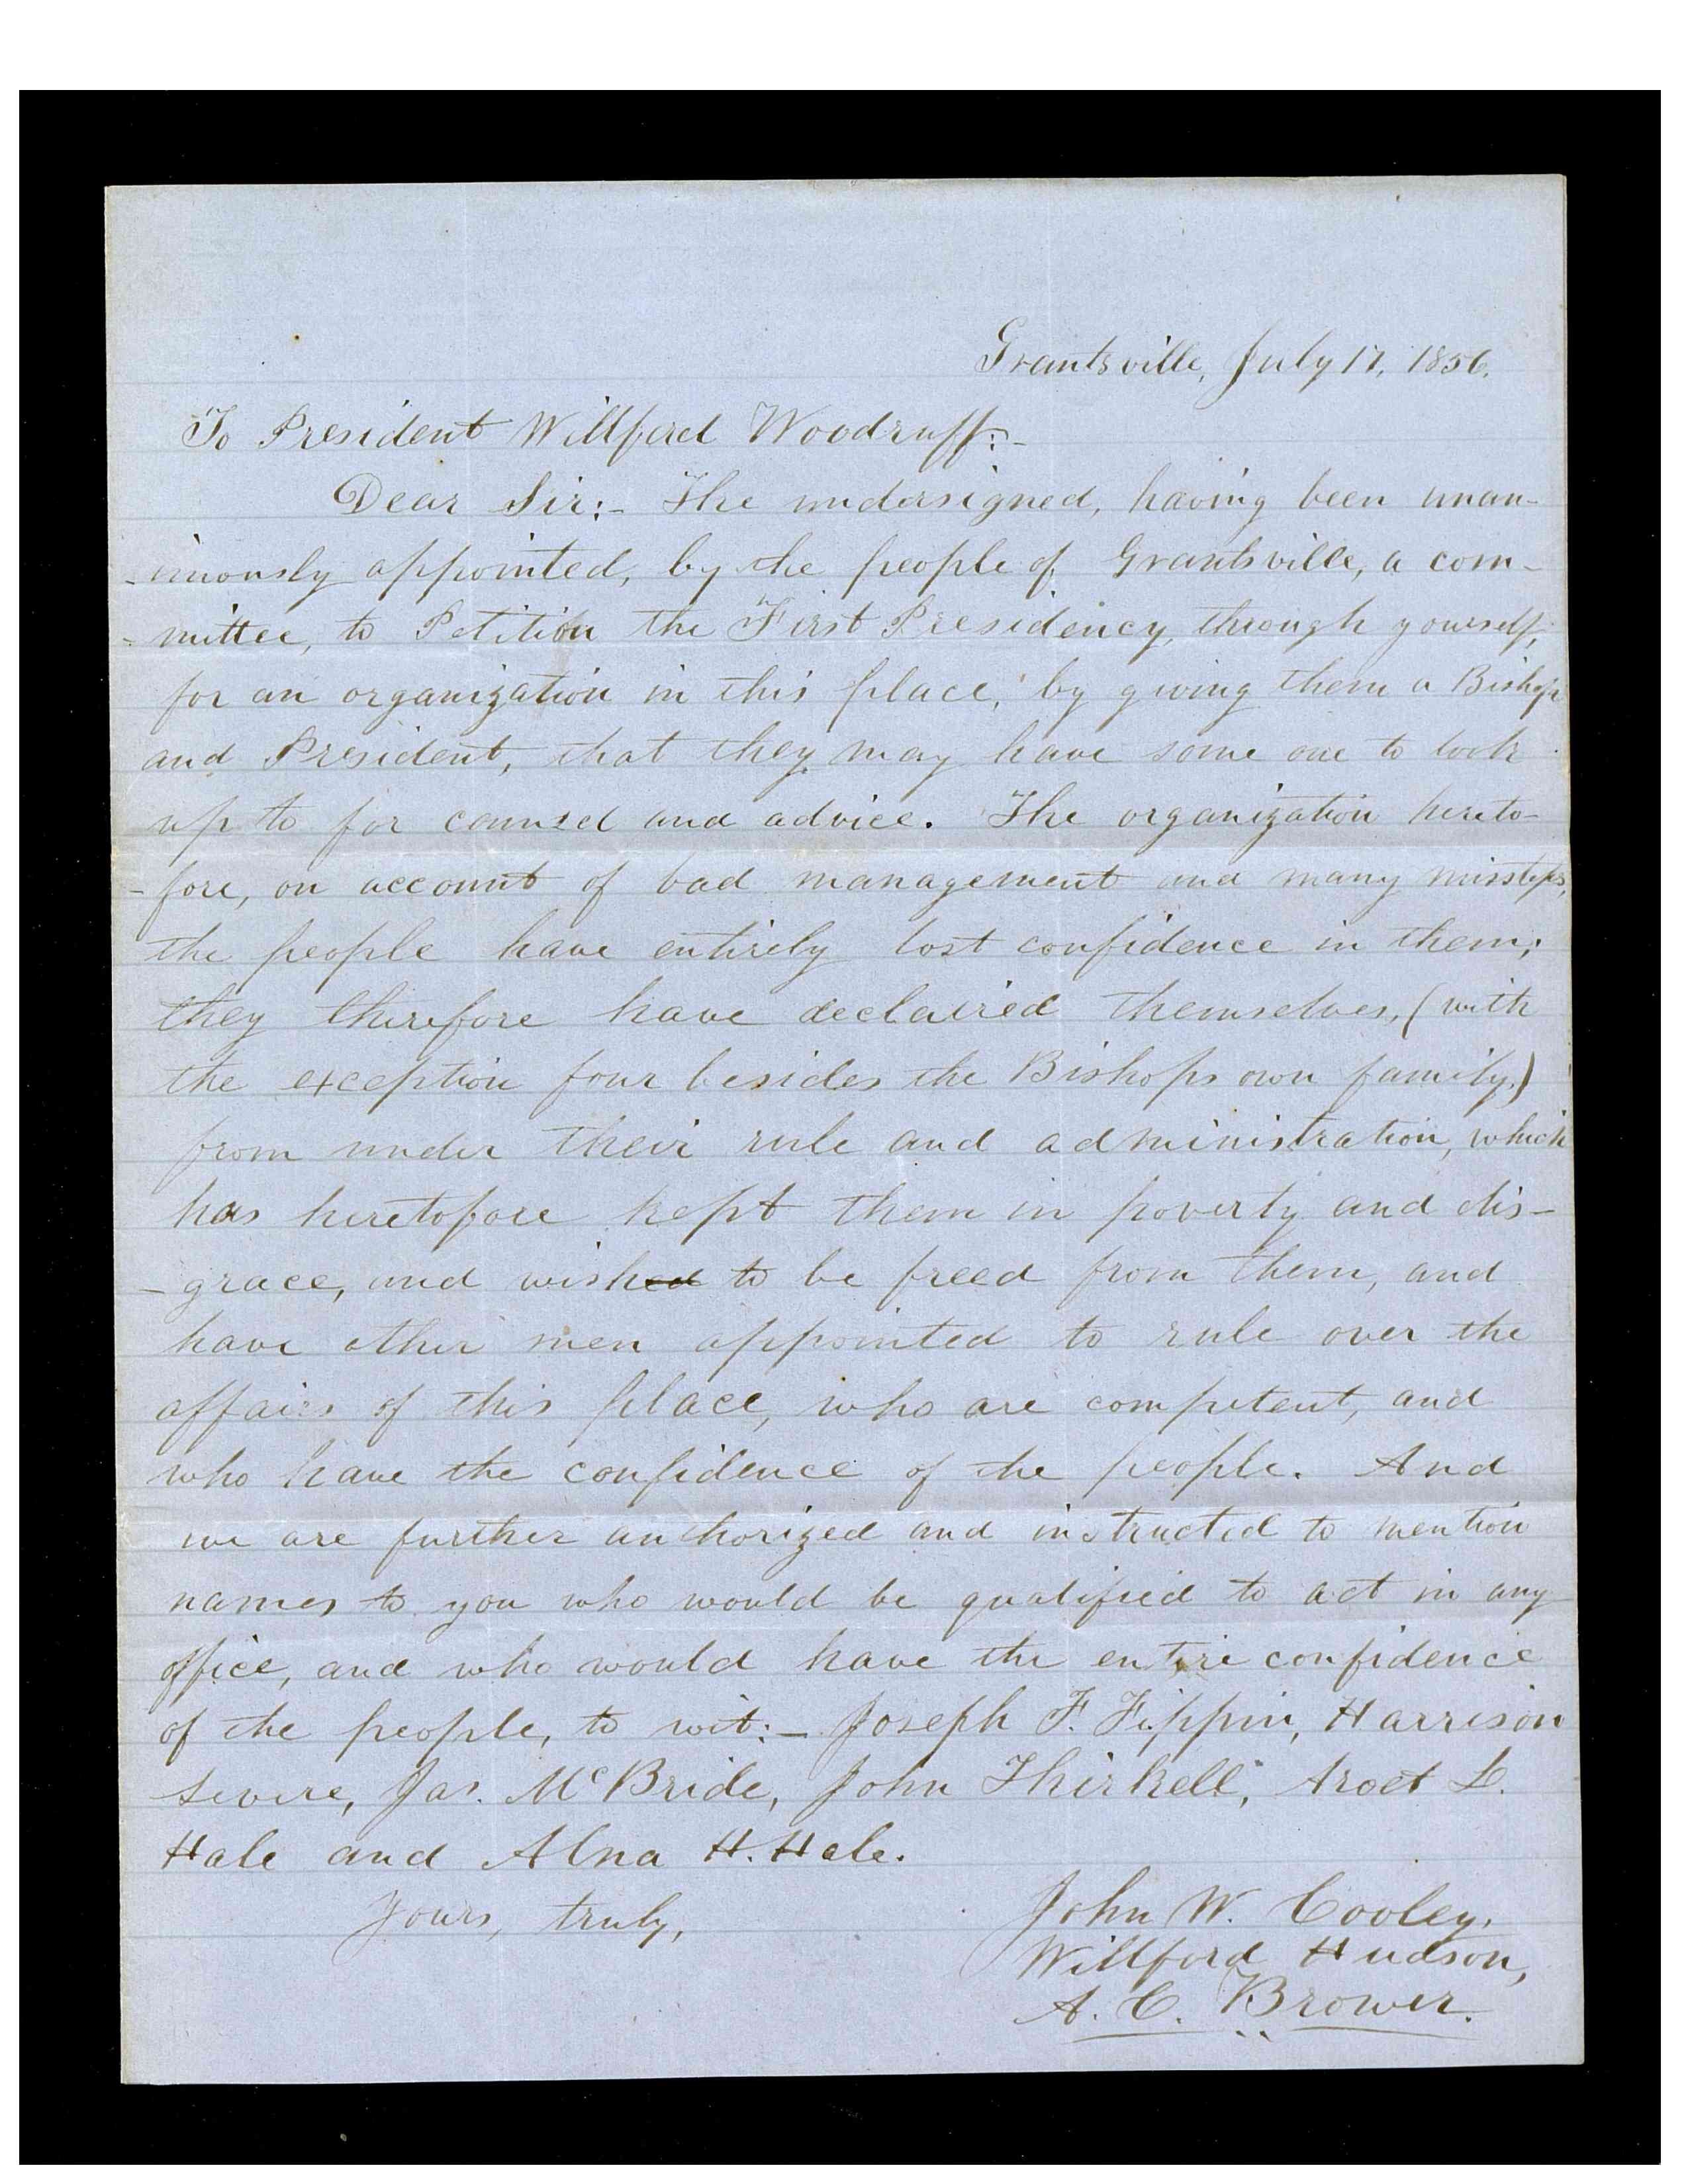 Grantsville, July 17, 1856.
To President Willford Woodruff:-
Dear Sir:- The undersigned, having been unan-
-imously appointed, by the people of Grantsville, a com-
-mittee, to Petition the First Presidency, through yourself,
for an organization in this place, by giving them a Bishop
and President, that they may have some one to look
up to for counsel and advice. The organization hereto-
-fore, on account of bad management and many missteps,
the people have entirely lost confidence in them;
they therefore have declaired themselves, (with
the exception four besides the Bishops own family,)
from under their rule and administration, which
has heretofore kept them in poverty and dis-
-grace, and wished to be freed from them, and
have other men appointed to rule over the
affairs of this place, who are competent, and
who have the confidence of the people. And
we are further authorized and instructed to mention
names to you who would be qualified to act in any
office, and who would have the entire confidence
of the people, to wit:- Joseph F. Fippin, Harrison
Severe, Jas. McBride, John Thirkell, Aroet L.
Hale and Alna H. Hale.
Yours, truly,
John W. Cooley,
Willford Hudson,
A. C. Brower.